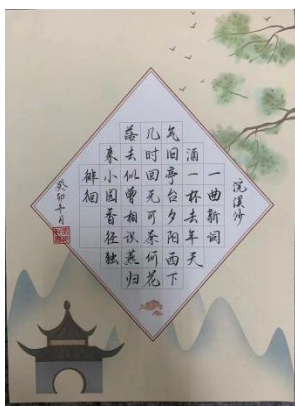 浣溪沙
一曲新词
酒一杯去年天
气旧亭台夕阳西下
几时回无可奈何花
落去似曾相识燕归
来小园香径独
徘徊
癸卯月